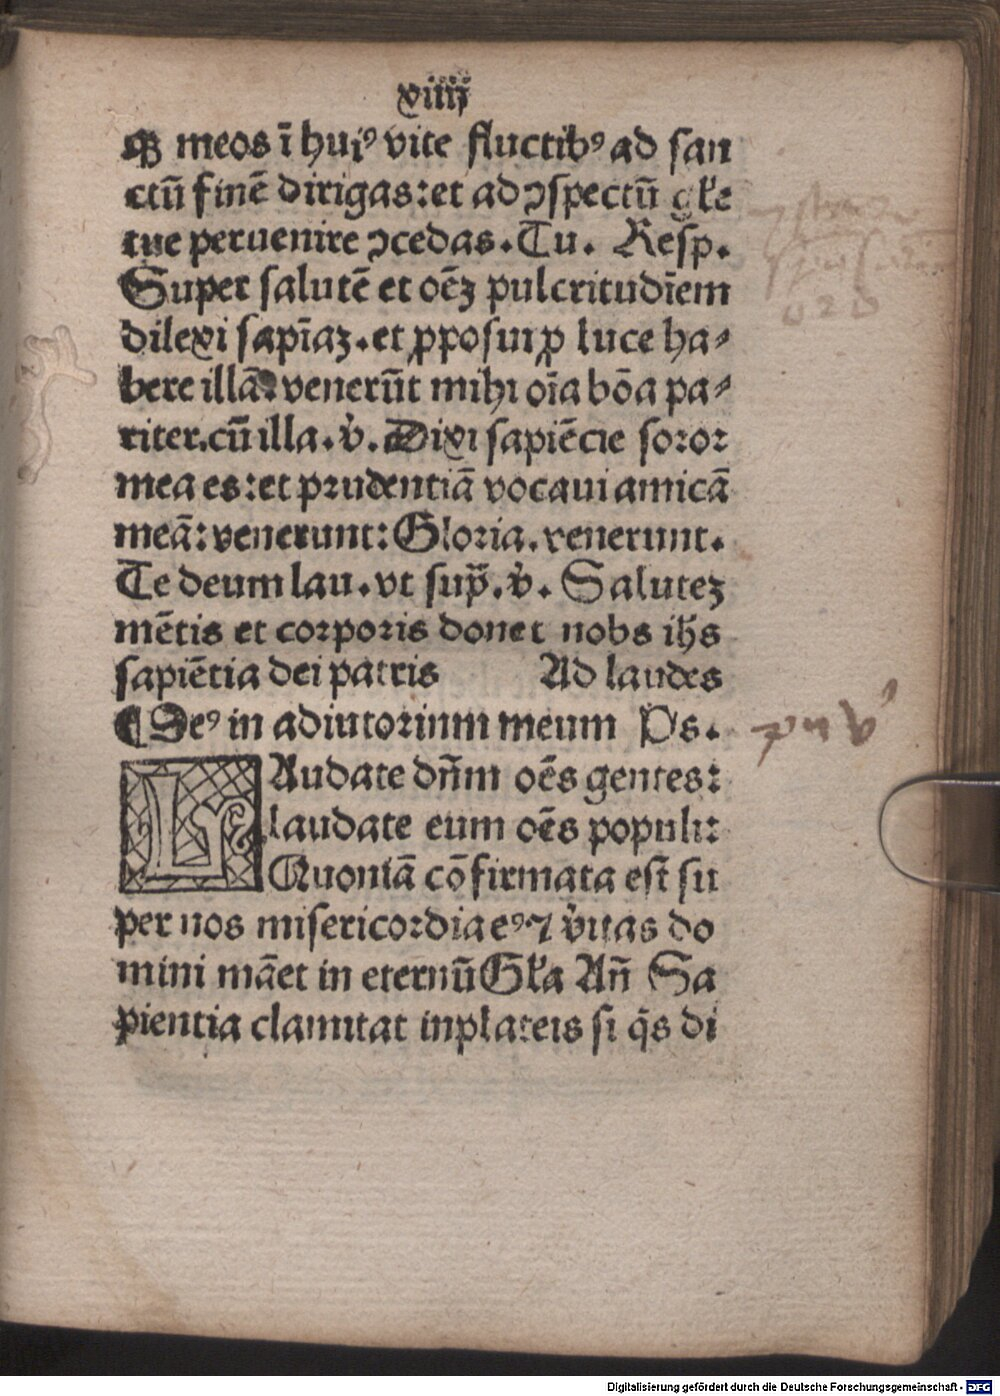 xiiij
qꝫ meos ī huiꝰ vite fluctibꝰ ad san
ctū finē dirigas: et ad ꝯspectū gl̄e
tue peruenire ꝯcedas. Tu. Resp.
Super salutē et oēꝫ pulcritudīem
dilexi sapīaꝫ. et ꝓposui ꝓ luce ha⸗
bere illā: venerūt mihi oīa bōa pa⸗
riter. cū illa. v̉. Dixi sapiēcie soꝛoꝛ
mea es: et pꝛudentiā vocaui amicā
meā: venerunt: Gloꝛia. venerunt.
Te deum lau. vt sup̄. v̉. Saluteꝫ
mētis et coꝛpoꝛis donet nobs ihs
sapiētia dei patris Ad laudes
¶ Deꝰ in adiutoꝛium meum Ps.
LAudate dn̄m oēs gentes:
laudate eum oēs populi:
Quoniā cōfirmata est su
per nos misericoꝛdia eꝰ ⁊ v̉itas do
mini māet in eternū Gl̄a An̄ Sa
pientia clamitat in plateis si q̄s di
Digitalisierung gefördert durch die Deutsche Forschungsgemeinschaft - DFG